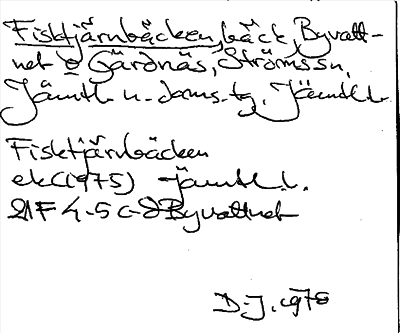 Fisktjärnbäcken, bäck, Byvatt-
net o Gärdnäs, Ströms sn,
Jämtl. n. doms. tg, Jämtl. l.
Fisktjärnbäcken
ek (1975) Jämtl. l.
21F 4-5 c-d Byvattnet
D.J. 1978